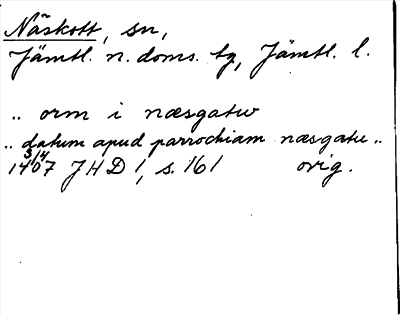 Näskott, sn,
Jämtl. n. doms. tg, Jämtl. l.
.. orm i næsgatu
.. datum apud parrochiam næsgatu ..
3/4
1407 JHD 1, s. 161 orig.